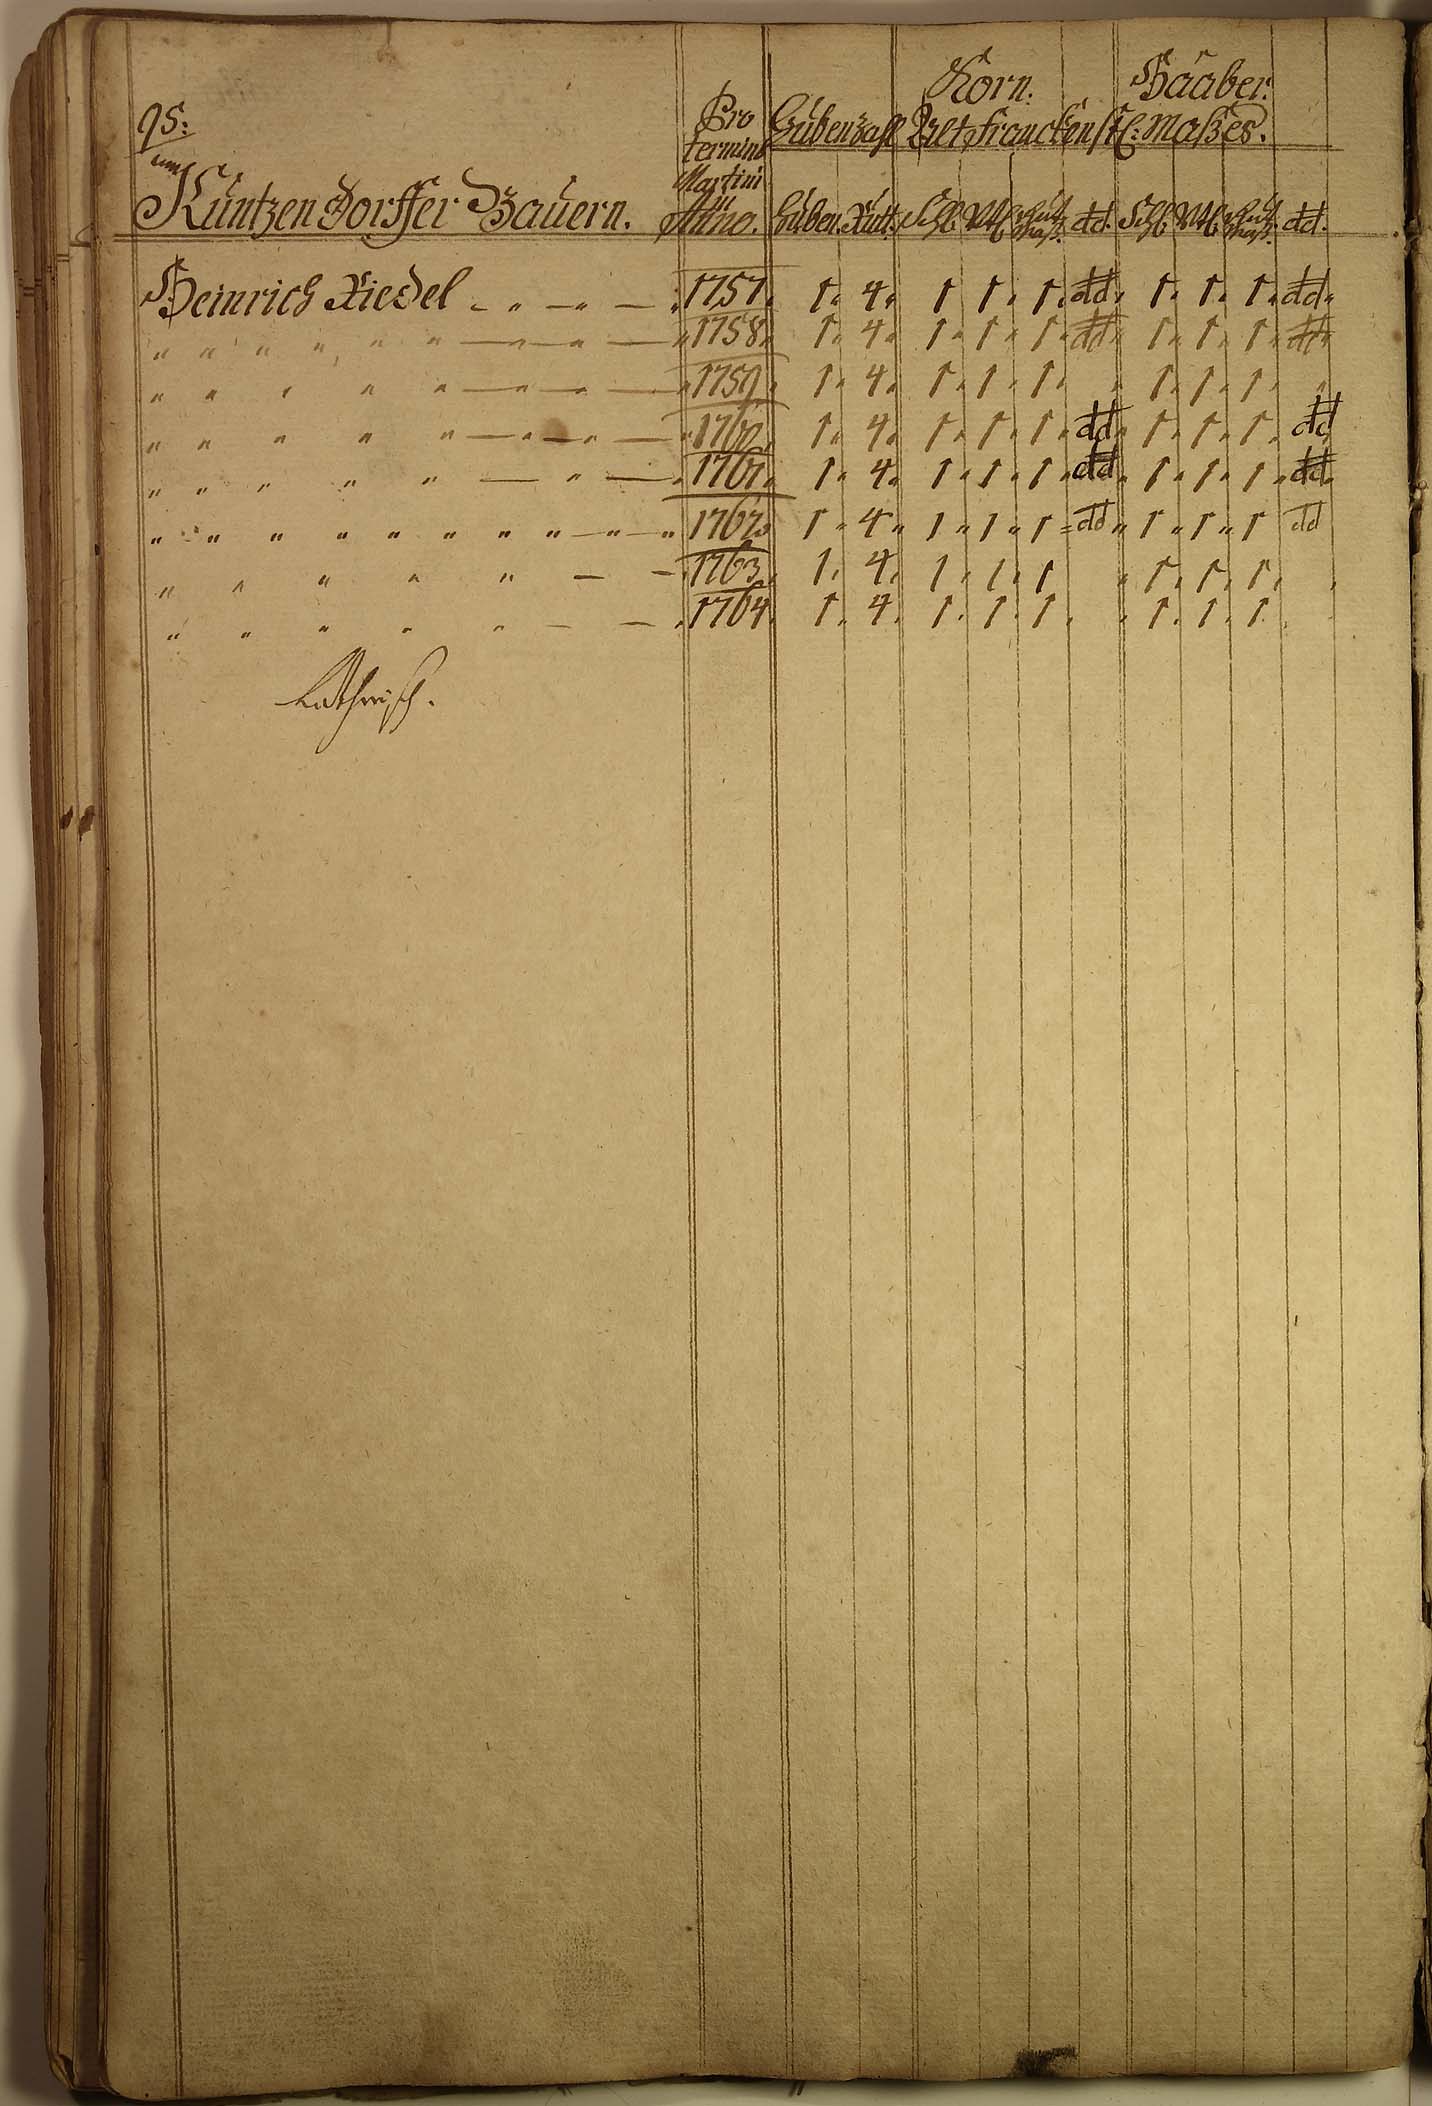 95:
Korn. Haaber.
Pro Hubenzahl Alt Franckenst: Maßes.
termino
Martini
Kuntzendorffer Bauern. Anno. Huben. Rutt. Schl. Mtl. dd. Schl. Mtl. dd.
Heinrich Riedel - " - " - 1757. 1. 4. 1 1. 1. dd. 1. 1. 1. dd.
" " " " " " — " — " — " 1758. 1. 4. 1. 1. 1. dd 1. 1. 1. dd.
" " " " " — " — " — " 1759. 1. 4. 1. 1. 1. " 1. 1. 1. "
" " " " " — " — " — " 1760. 1. 4. 1. 1. 1. dd. 1. 1. 1. dd
" " " " " — " — . 1761. 1. 4. 1. 1. 1. dd. 1. 1. 1. dd.
" " " " " " " " " — " — " 1762. 1. 4. 1. 1. 1 dd 1. 1. 1 dd
" " " " " — — . 1763. 1. 4. 1. 1. 1 . 1. 1. 1. .
" " " " " — — . 1764. 1. 4. 1. 1. 1. . 1. 1. 1.